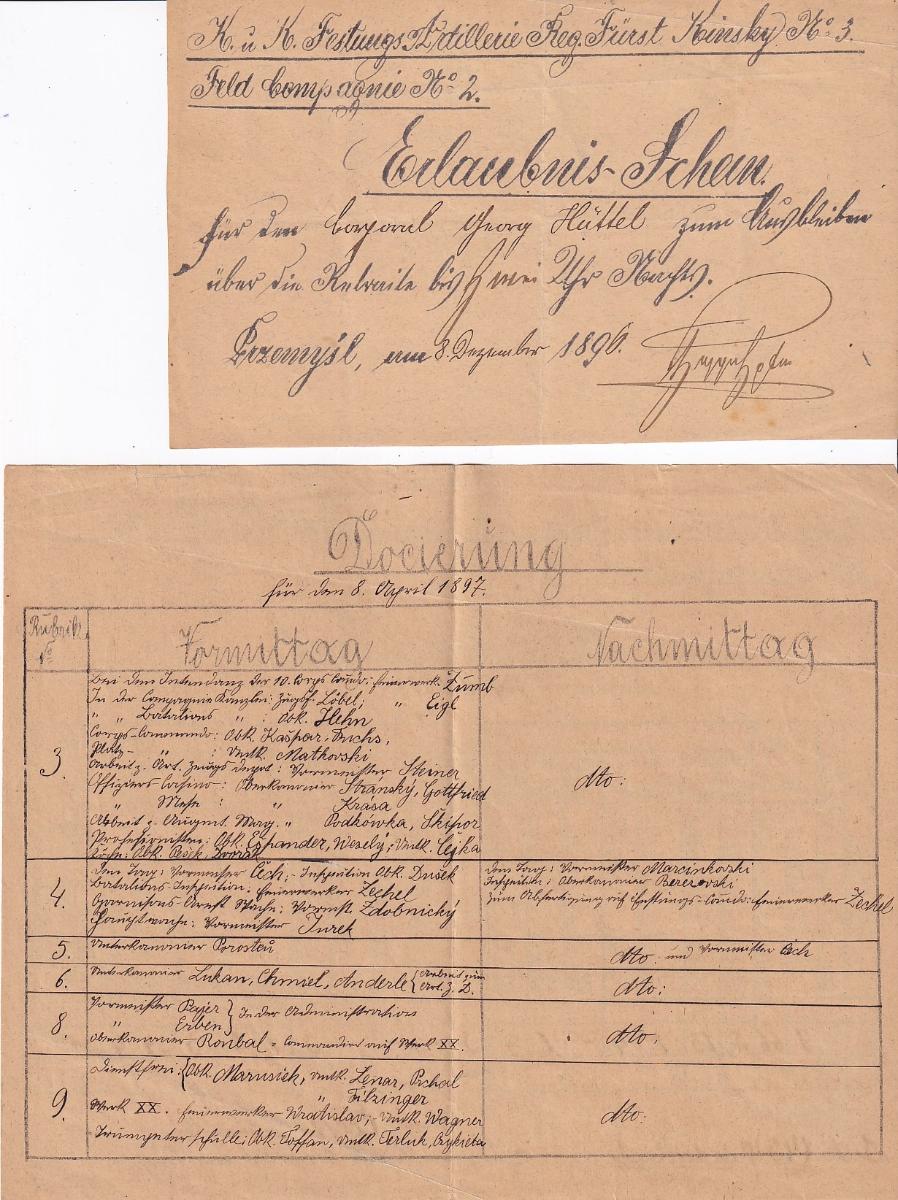 K. u. K. Festungs-Artillerie Reg. Fürst Kinsky No. 3.
Feld Compagnie No. 2.
Erlaubnis-Schein.
für den Corporal Georg Hüttel zum Ausbleiben
über die Retraite bis zwei Uhr Nachts.
Przemyśl, am 8. Dezember 1896.
Docierung
für den 8. April 1897.
Rubrik No
Vormittag
Nachmittag
3.
Bei dem Intendanz der 10. Corps Comdo: Feuerwerk. Zumb
In der Compagnie Kanzlei: Zugsf. Löbel; " Eigl
" " Batalions " : Obk. Hehn
Corps-Commando: Obk. Kašpar, Fuchs,
Platz- " : Untk. Matkovski
Arbeit z. Art. Zeugs Depot: Vormeister Steiner
Offiziers Casino: Oberkanonier Stransky, Gottfried
" Messe : " Krasa
Arbeit z. Augmt. Mag. " Podkówka, Skipor
Professionisten: Obk. Ephander, Wesely; Untk. Cejka
Köche: Obk. Pešek, Dvorak
dto:
4.
Den Tag: Vormeister Čech; Inspection Obk. Dušek
Batalions Inspection: Feuerwerker Zechel
Garnisons Arrest Wache: Vormst. Zdobnický
Hauptwache: Vormeister Turek
Den Tag: Vormeister Marcinkovski
Inspection: Oberkanonier Bererovski
zum Abfertigung auf Festungs-Comdo: Feuerwerker Zechel
5.
Unterkanonier Porosteu
dto und Vormeister Čech
6.
Unterkanonier Lukan, Chmiel, Anderle { Arbeit zum Art. Z. D.
dto:
8.
Vormeister Pajer
" Erben } In der Administration
Oberkanonier Roubal - Commandirt auf Werk XX.
dto.
9.
Dienstfrei: { Obk. Marusiek, Untk. Lenar, Pchal
" Filzinger
Werk XX. Feuerwerker Wratislav; Untk. Wagner
Trumpeterschule: Obk. Toffan, Untk. Terluk, Czykieta
dto: